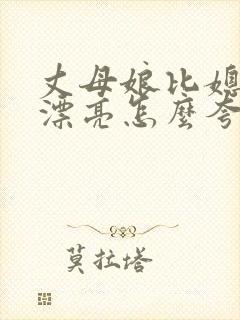 丈母娘比媳
漂亮怎麼夸
莫拉塔